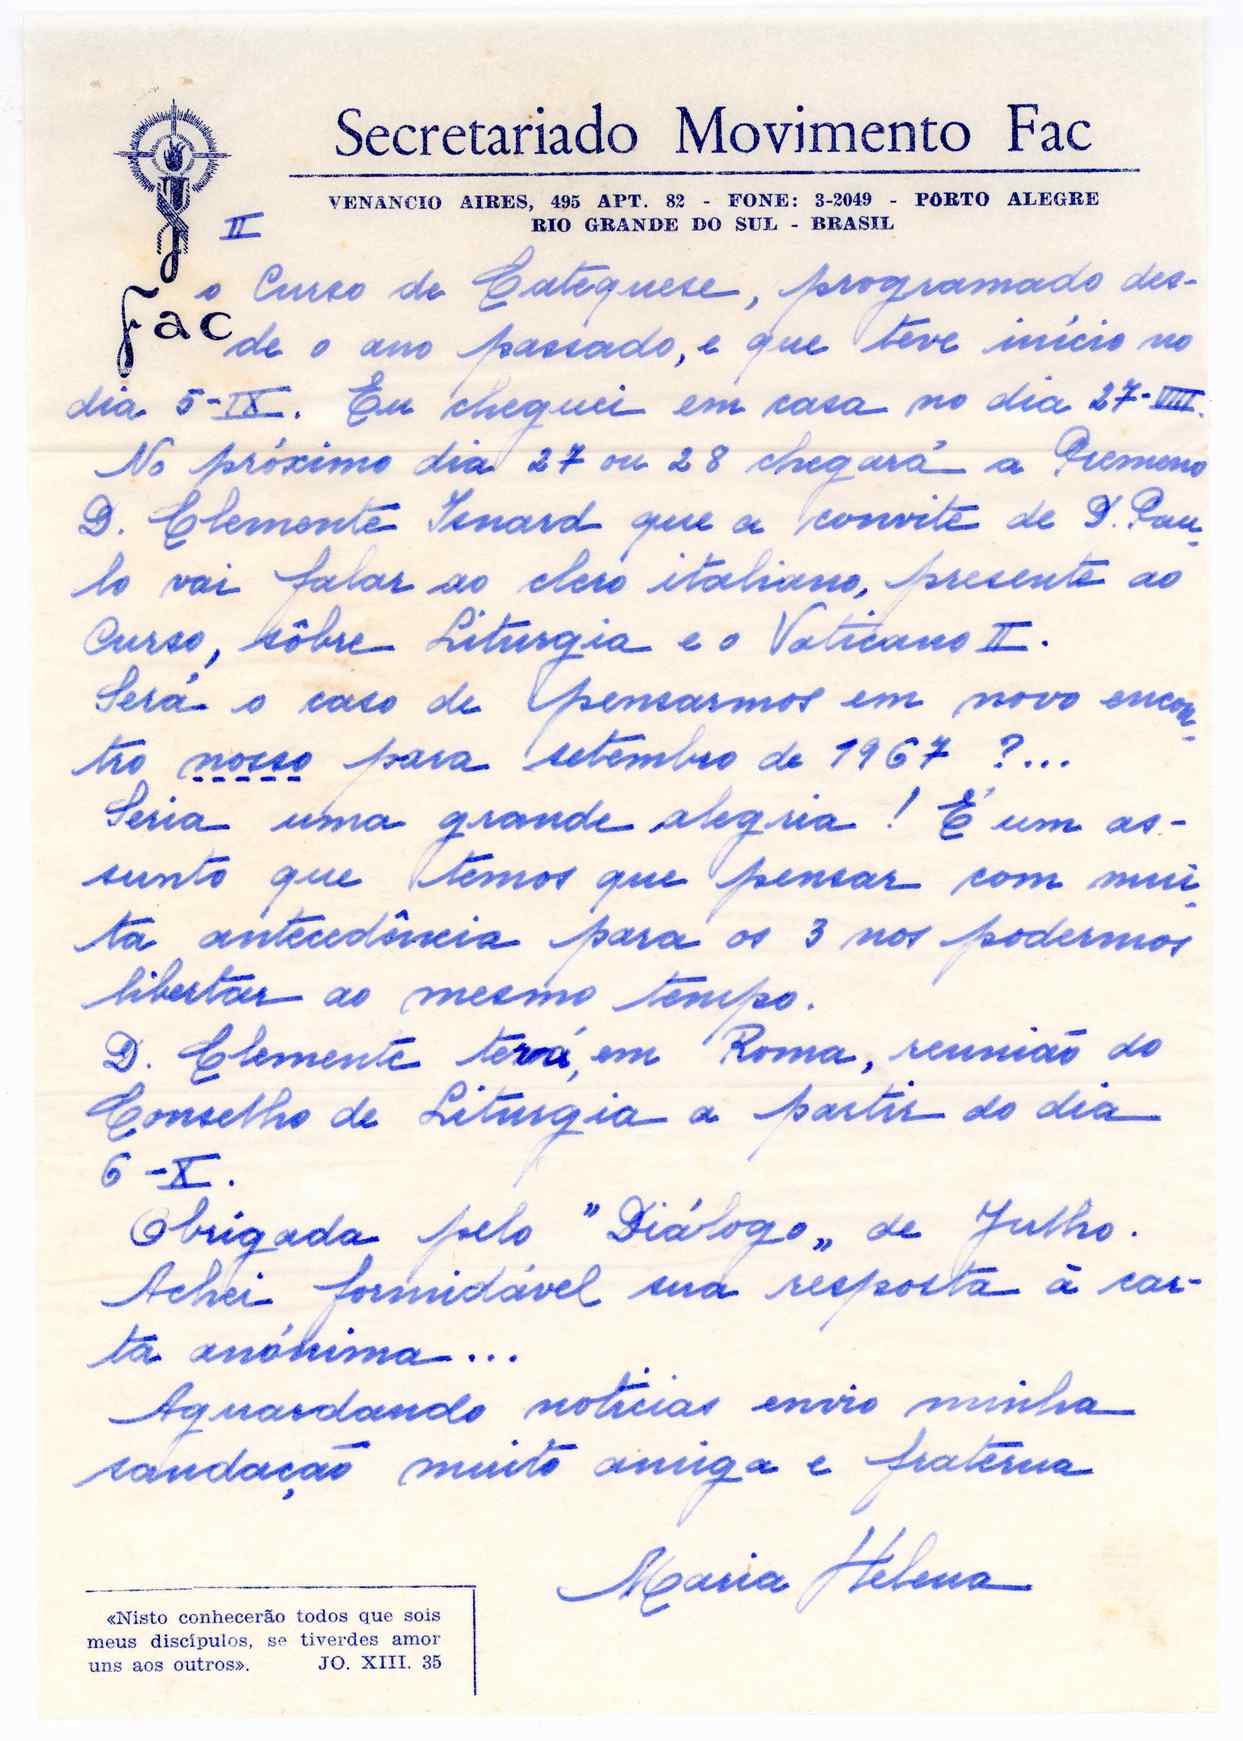 Secretariado Movimento Fac
VENANCIO AIRES, 495 APT. 82 - FONE: 3-2049 - PORTO ALEGRE
RIO GRANDE DO SUL - BRASIL
II
Fac
o Curso de Catequese, programado des-
de o ano passado, e que teve início no
dia 5-IX. Eu cheguei em casa no dia 27-VIII.
No próximo dia 27 ou 28 chegará a
D. Clemente Isnard que a convite de D. Pau-
lo vai falar ao clero italiano, presente ao
Curso, sôbre Liturgia e o Vaticano II.
Será o caso de pensarmos em novo encon-
tro nosso para setembro de 1967 ?...
Seria uma grande alegria ! É um as-
sunto que temos que pensar com mui-
ta antecedência para os 3 nos podermos
libertar ao mesmo tempo.
D. Clemente terá, em Roma, reunião do
Conselho de Liturgia a partir do dia
6-X.
Obrigada pelo "Diálogo„ de Julho.
Achei formidável sua resposta à car-
ta anónima...
Aguardando notícias envio minha
saudação muito amiga e fraterna
Maria Helena
«Nisto conhecerão todos que sois
meus discípulos, se tiverdes amor
uns aos outros». JO. XIII. 35